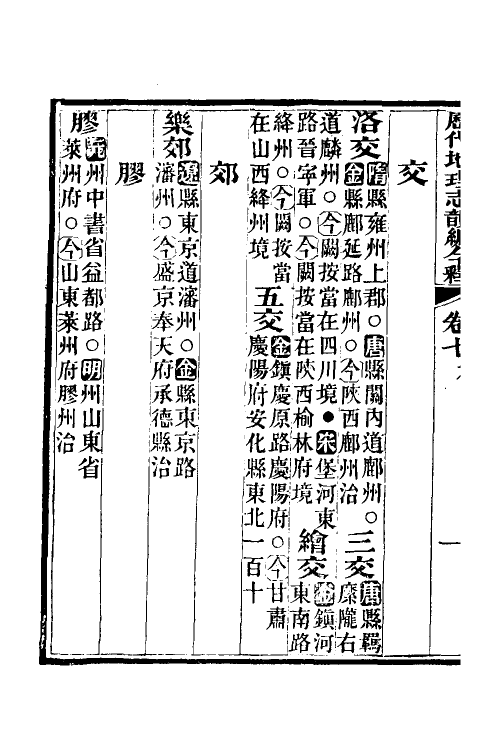 歷代地理志韻編今釋 卷十 一
交
洛交 隋縣雍州上郡○唐縣關內道鄜州○
金縣鄜延路鄜州○今陝西鄜州治
三交 唐縣羈
縻隴右
道麟州○今闕按當在四川境●宋堡河東
路晉寧軍○今闕按當在陝西榆林府境
繪交 金鎮河
東南路
絳州○今闕按當
在山西絳州境
五交 金鎮慶原路慶陽府○今甘肅
慶陽府安化縣東北一百十
郊
樂郊 遼縣東京道瀋州○金縣東京路
瀋州○今盛京奉天府承德縣治
膠
膠 元州中書省益都路○明州山東省
萊州府○今山東萊州府膠州治